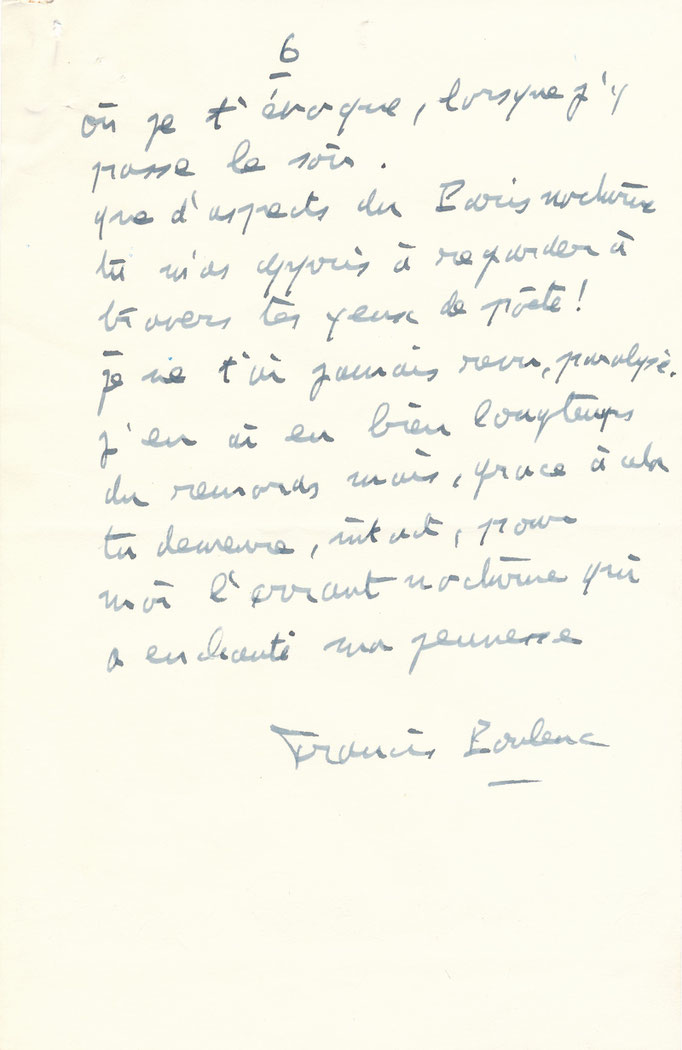 6
où je t'évoque, lorsque j'y
passe le soir.
que d'aspects du Paris nocturne
tu m'as appris à regarder à
travers tes yeux de poète!
je ne t'ai jamais revu, paralysé.
j'en ai eu bien longtemps
du remords mais, grace à cela
tu demeure, intact, pour
moi l'errant nocturne qui
a enchanté ma jeunesse
Francis Poulenc